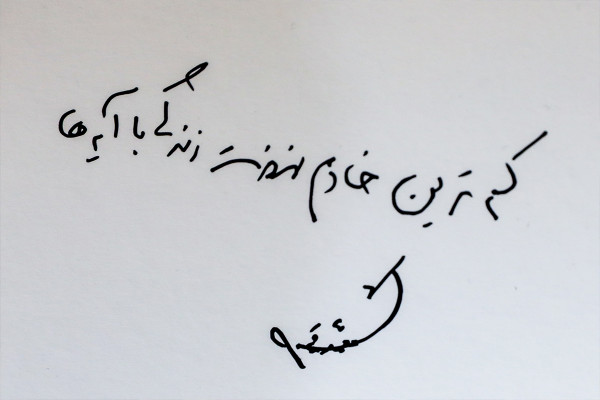 کم ترین خادم نهضت زندگی با آیه ها